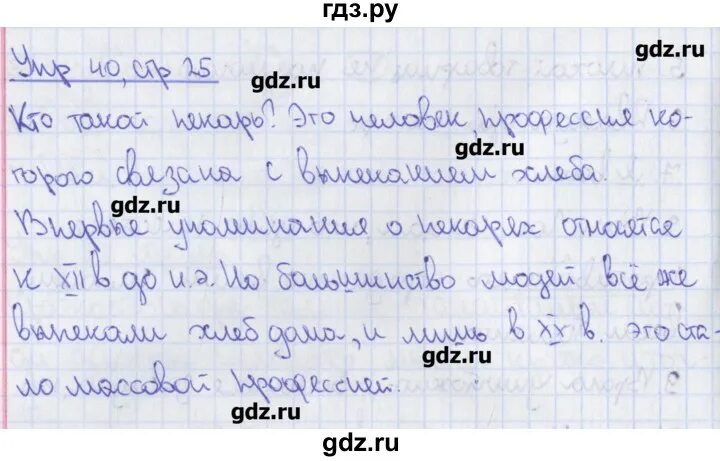 гдз.ру
Упр 40, стр 25
gdz.ru
gdz.ru
Кто такой пекарь? Это человек, профессия ко-
gdz.ru
торого связана с выпеканием хлеба.
gdz.ru
Впервые упоминания о пекарях относятся
к XII в до н.э. Но большинство людей всё же
gdz.ru
выпекали хлеб дома, и лишь в XX в. это ста-
ло массовой профессией.
gdz.ru
gdz.ru